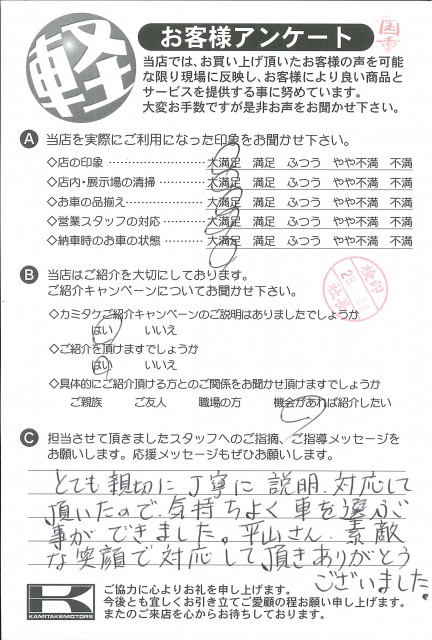 軽
お客様アンケート
当店では、お買い上げ頂いたお客様の声を可能
な限り現場に反映し、お客様により良い商品と
サービスを提供する事に努めています。
大変お手数ですが是非お声をお聞かせ下さい。
A 当店を実際にご利用になった印象をお聞かせ下さい。
◇店の印象 ………………… 大満足 満足 ふつう やや不満 不満
◇店内・展示場の清掃 ………… 大満足 満足 ふつう やや不満 不満
◇お車の品揃え ……………… 大満足 満足 ふつう やや不満 不満
◇営業スタッフの対応 ………… 大満足 満足 ふつう やや不満 不満
◇納車時のお車の状態 ………… 大満足 満足 ふつう やや不満 不満
B 当店はご紹介を大切にしております。
ご紹介キャンペーンについてお聞かせ下さい。
◇カミタケご紹介キャンペーンのご説明はありましたでしょうか
はい いいえ
◇ご紹介を頂けますでしょうか
はい いいえ
◇具体的にご紹介頂ける方とのご関係をお聞かせ頂けますでしょうか
ご親族 ご友人 職場の方 機会があれば紹介したい
C 担当させて頂きましたスタッフへのご指摘、ご指導メッセージを
お願いします。応援メッセージもぜひお願いします。
とても親切に丁寧に説明、対応して
頂いたので、気持ちよく車を選ぶ
事ができました。平山さん、素敵
な笑顔で対応して頂きありがとう
ございました。
K
KAMITAKEMOTORS
ご協力に心よりお礼を申し上げます。
今後とも宜しくお引き立てご愛顧の程お願い申し上げます。
またのご来店を心からお待ちしております。